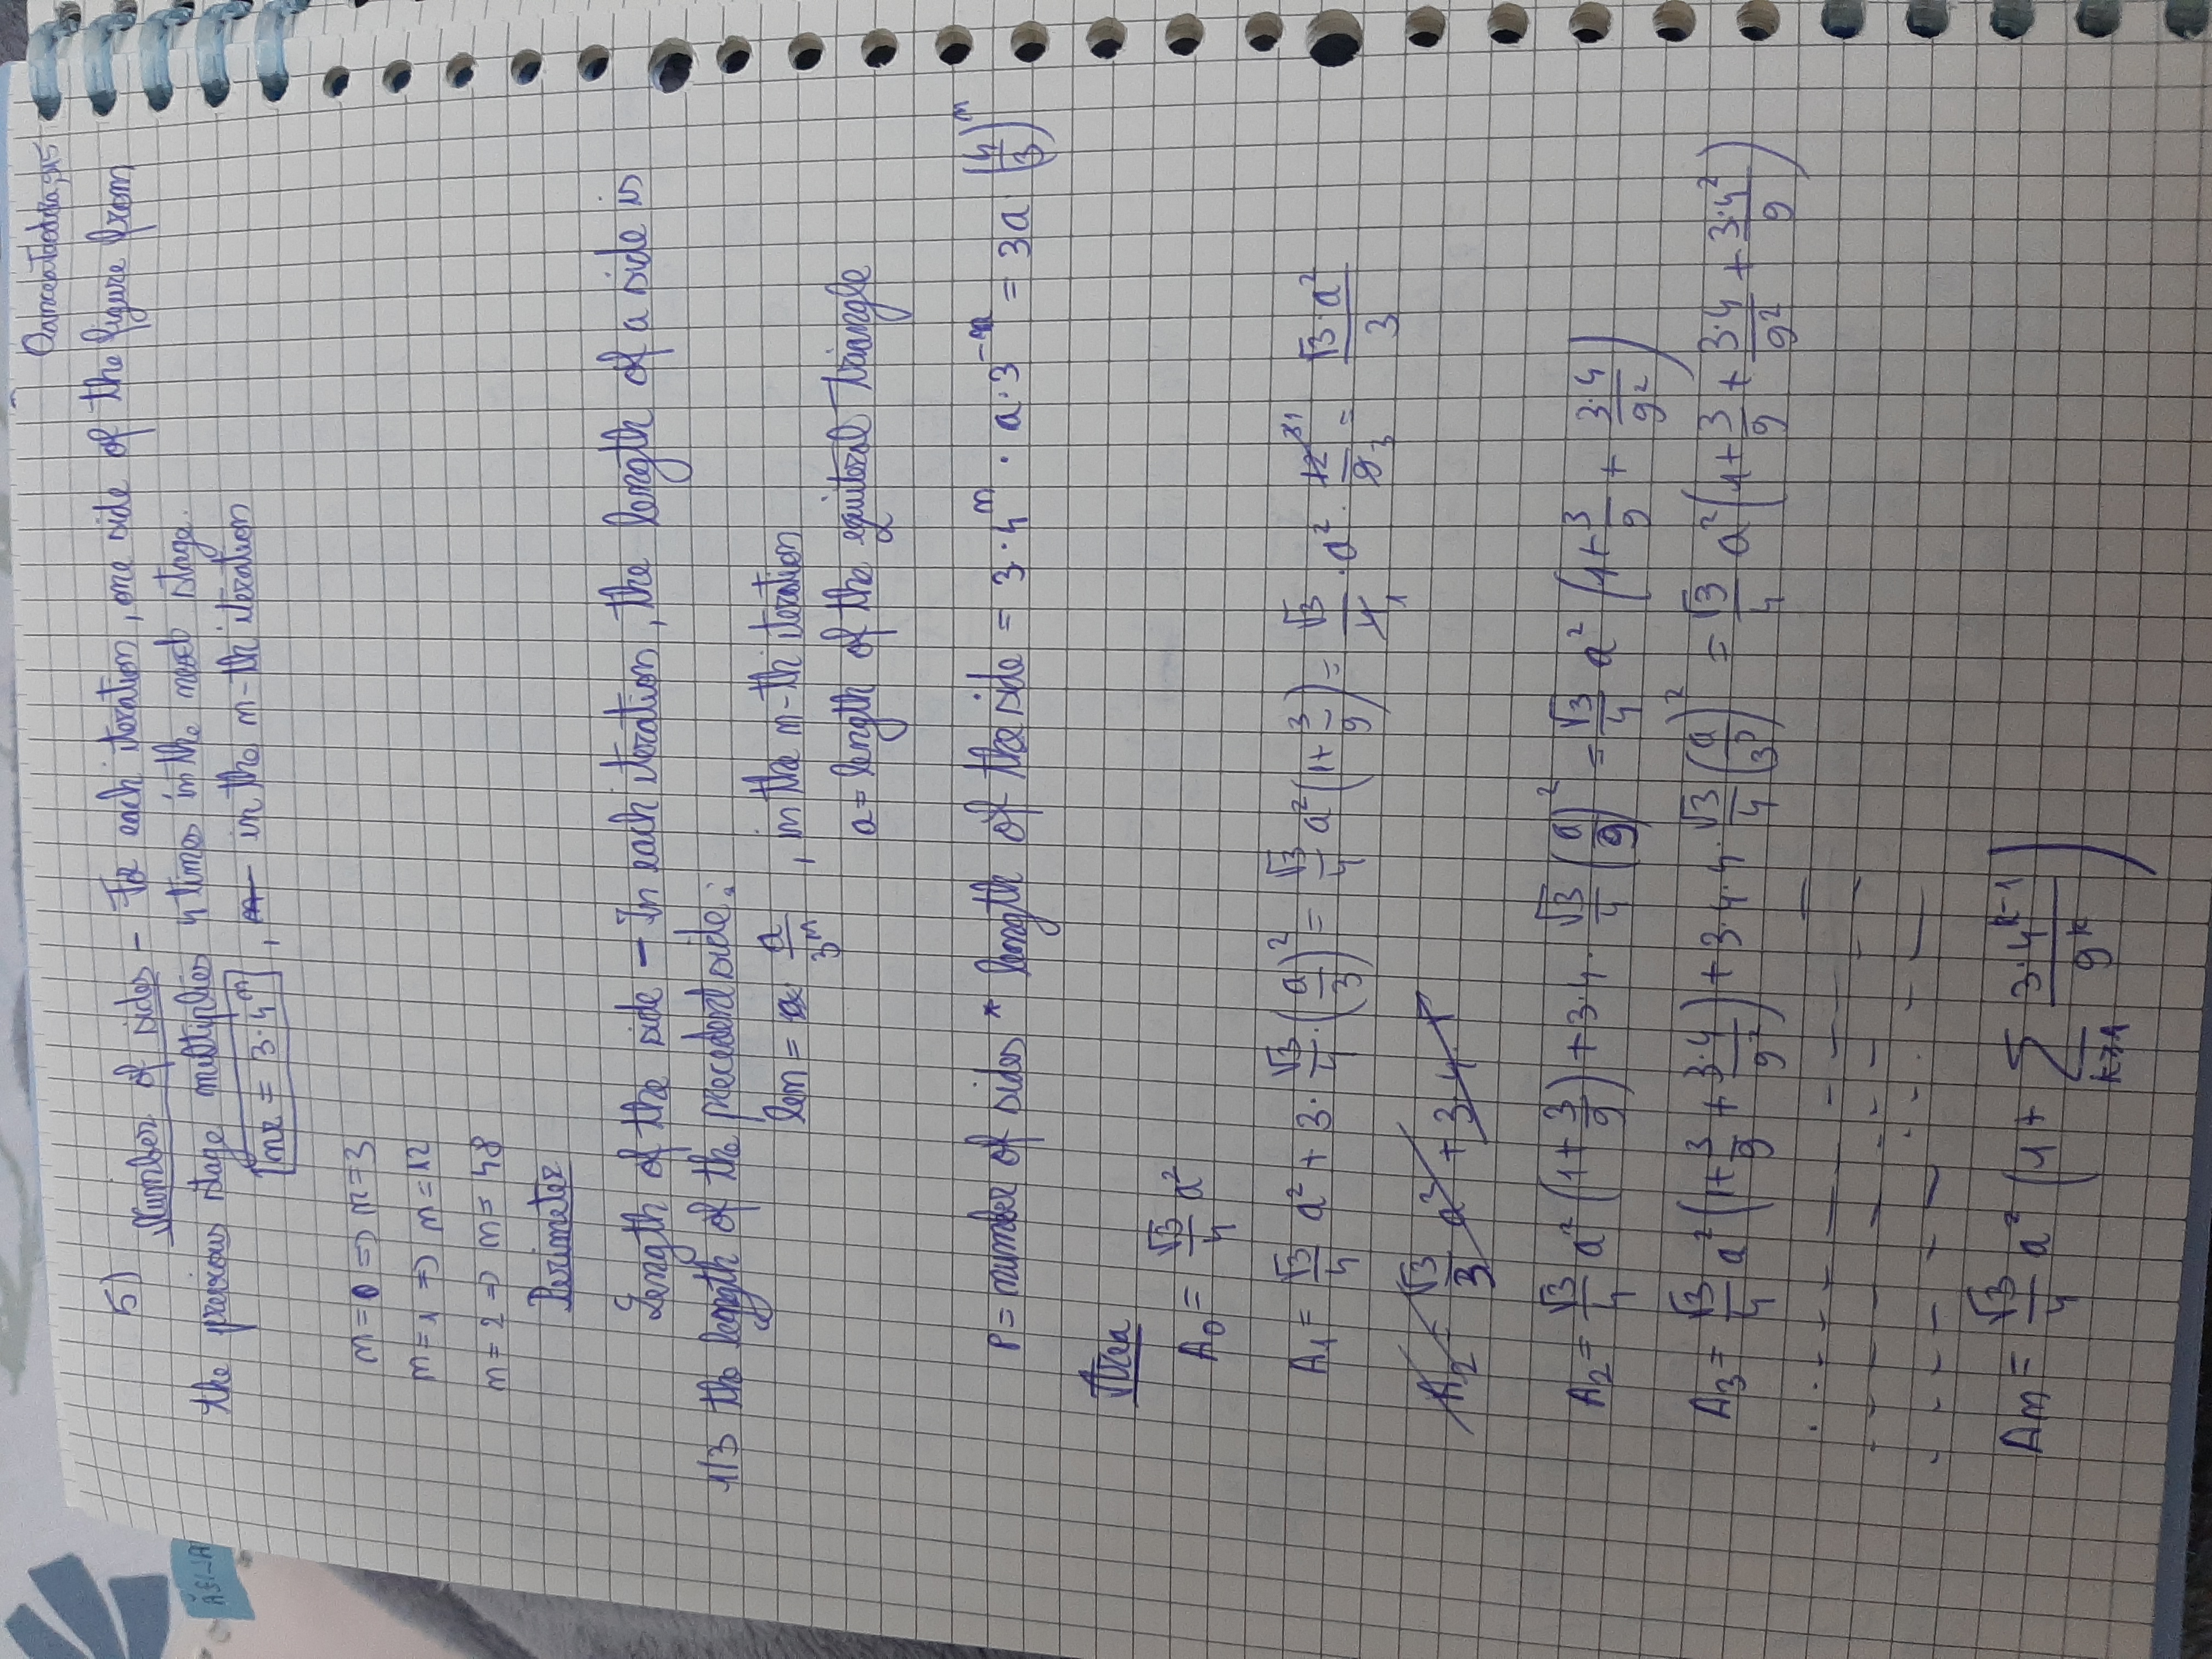 5)
Number of sides – For each iteration, one side of the figure from
the previous stage multiplies 4 times in the next stage.
nr = 3·4^n , in the n-th iteration
n=0 => n=3
n=1 => n=12
n=2 => n=48
Perimeter
Length of the side – In each iteration, the length of a side is
1/3 the length of the precedent side:
len = a/3^n , in the n-th iteration
a = length of the equiteral triangle
P = number of sides * length of the side = 3·4^n · a·3^-n = 3a (4/3)^n
Area
A0 = √3/4 a²
A1 = √3/4 a² + 3·√3/4·(a/3)² = √3/4 a² (1+3/9) = √3/4 · a² · 12/9 = √3·a²/3
A2 = √3/3 a² + 3·4
A2 = √3/4 a² (1+3/9) + 3·4·√3/4 (a/9)² = √3/4 a² (1+3/9 + 3·4/9²)
A3 = √3/4 a² (1+3/9+3·4/9²) + 3·4·4·√3/4 (a/3³)² = √3/4 a² (1+3/9+3·4/9²+3·4²/9)
An = √3/4 a² (1+ ∑ k≥1 3·4^k-1/9^k)